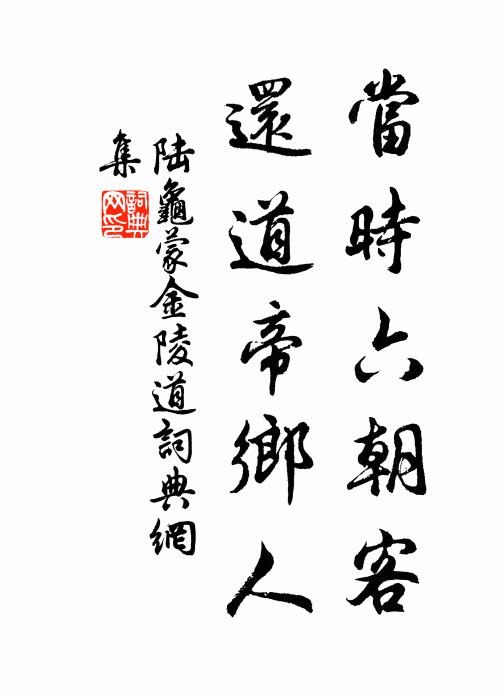 當時六朝客
還道帝鄉人
陸龜蒙金陵道詞典網
集
詞典網印